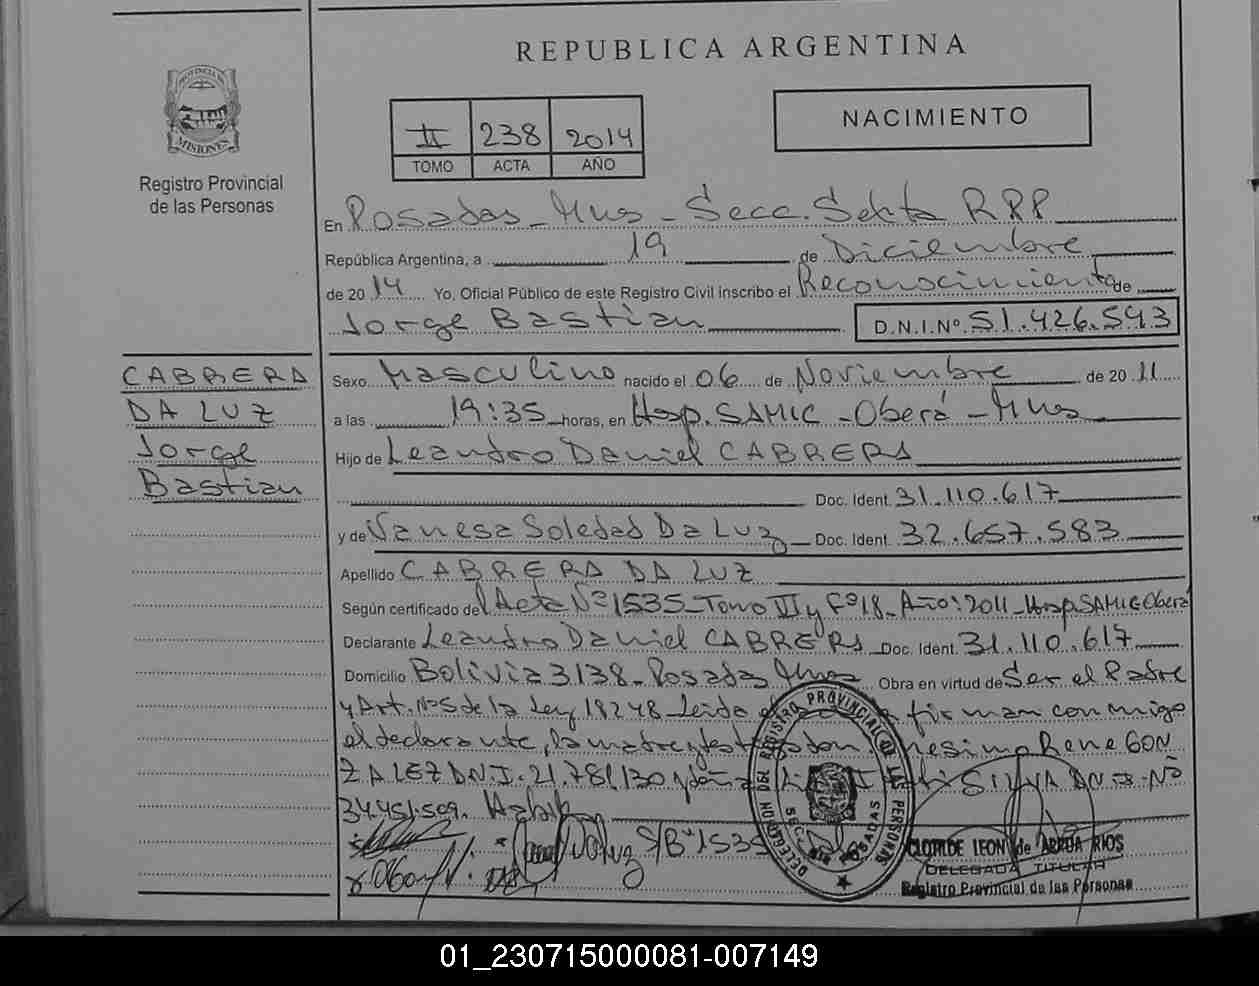 REPUBLICA ARGENTINA
PROVINCIA DE
MISIONES
Registro Provincial
de las Personas
II 238 2014
TOMO ACTA AÑO
NACIMIENTO
En Posadas - Mnes - Secc. Sexta RPP
República Argentina, a 19 de Diciembre
de 2014 Yo, Oficial Público de este Registro Civil inscribo el Reconocimiento de
Jorge Bastian D.N.I.Nº 51.426.543
CABRERA
DA LUZ
Jorge
Bastian
Sexo Masculino nacido el 06 de Noviembre de 2011
a las 19:35 horas, en Hosp. SAMIC - Oberá - Mnes
Hijo de Leandro Daniel CABRERA
Doc. Ident. 31.110.617
y de Vanesa Soledad Da Luz Doc. Ident. 32.657.583
Apellido CABRERA DA LUZ
Según certificado del Acta Nº 1535 - Tomo VII y Fº 18 - Año: 2011 - Hosp SAMIC Oberá
Declarante Leandro Daniel CABRERA Doc. Ident. 31.110.617
Domicilio Bolivia 3138 - Posadas Mnes Obra en virtud de Ser el Padre
y Art. Nº 5 de la Ley 18248 - Leida el firman conmigo
el declarante, la madre y testigos don Rene GON
ZALEZ D.N.I. 21.781.130 y doña SILVA D.N.I. Nº
34.451.509.
S/Bº 1535
DELEGACION DEL REGISTRO PROVINCIAL DE LAS PERSONAS
POSADAS
CLOTILDE LEON de ARRUA RIOS
DELEGADA TITULAR
Registro Provincial de las Personas
01_230715000081-007149